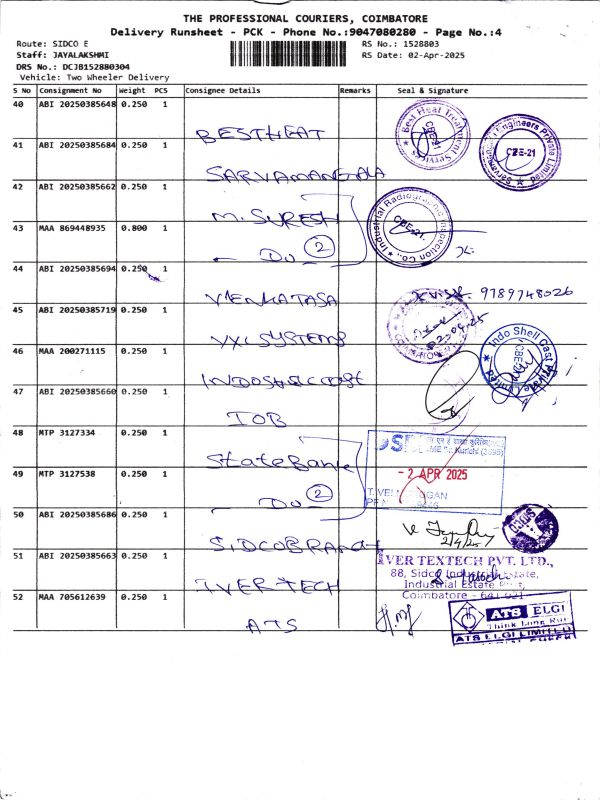 THE PROFESSIONAL COURIERS, COIMBATORE
Delivery Runsheet - PCK - Phone No.:9047080280 - Page No.:4
Route: SIDCO E
RS No.: 1528803
Staff: JAYALAKSHMI
RS Date: 02-Apr-2025
DRS No.: DCJB152880304
Vehicle: Two Wheeler Delivery
S No Consignment No Weight PCS Consignee Details Remarks Seal & Signature
40 ABI 20250385648 0.250 1
BESTHEAT
Best Heat Treatment Services
CBE-21
41 ABI 20250385684 0.250 1
SARVAMANGALA
Engineers Private Limited
CBE-21
42 ABI 20250385662 0.250 1
M. SURESH
Industrial Radiographic Inspection Co.,
CBE-21.
43 MAA 869448935 0.800 1
Do (2)
44 ABI 20250385694 0.250 1
VIENKATASA
9789748026
45 ABI 20250385719 0.250 1
VXL SYSTEMS
02-04-25
46 MAA 200271115 0.250 1
Indo Shell Cast Private Limited
47 ABI 20250385660 0.250 1
IOB
48 MTP 3127334 0.250 1
State Bank
Kurichi
- 2 APR 2025
49 MTP 3127538 0.250 1
Do (2)
50 ABI 20250385686 0.250 1
SIDCO BRANCH
2/4/25
SIDCO
51 ABI 20250385663 0.250 1
IVER TECH
IVER TEXTECH PVT. LTD.,
88, Sidco Industrial Estate,
Industrial Estate
Coimbatore - 641 021
52 MAA 705612639 0.250 1
ATS
ATS ELGI
Think Long Run
ATS ELGI LIMITED